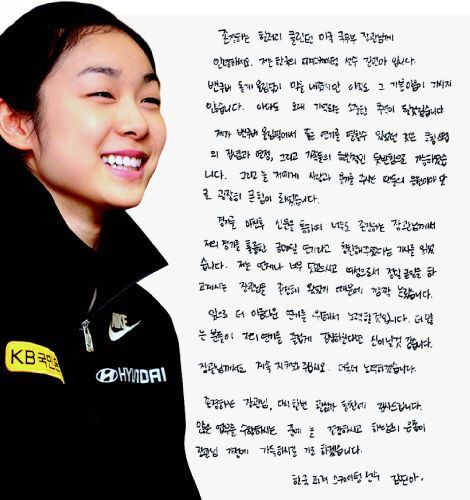 존경하는 힐러리 클린턴 미국 국무부 장관님께
안녕하세요. 저는 한국의 피겨스케이팅 선수 김연아 입니다.
밴쿠버 동계 올림픽이 막을 내렸지만 아직도 그 기쁨이 가시지
않습니다. 아마도 오래 기억되는 소중한 추억이 될것같습니다
제가 밴쿠버 올림픽에서 좋은 연기를 펼칠수 있었던 것은 코칭스탭
의 열정, 그리고 가족들의 뒷받침으로 가능하였습
니다. 그리고 늘 저에게 사랑과 용기를 주시는 팬들의 응원이야 말
로 굉장히 큰 힘이 되었습니다.
경기를 마친후 신문을 통하여 너무도 존경하는 장관님께서
저의 경기를 훌륭한 금메달 연기라고 칭찬해주셨다는 기사를 읽었
습니다. 저는 언제나 너무 여성으로서 하
고계시는 장관님을 존경해 왔었기 때문에 깜짝 놀랐습니다.
앞으로 더 아름다운 연기를 위해서 노력할것입니다. 더 많
은 분들이 저의 연기를 즐겁게 감상하신다면 신이날것 같습니다.
장관님께서도 계속 지켜봐 주십시오. 더욱더 노력하겠습니다.
존경하는 장관님, 다시한번 관심과 칭찬에 감사드립니다.
많은 업무를 수행하시는 중에 늘 건강하시고 하나님의 은총이
장관님 가정에 가득하시길 기도하겠습니다.
한국 피겨 스케이팅 선수 김연아.
NIKE
KB국민은
HYUNDAI